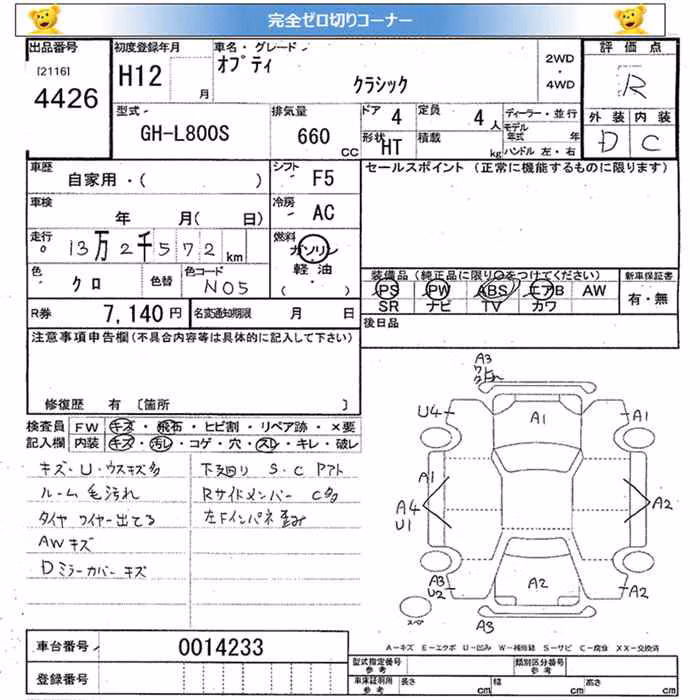 完全ゼロ切りコーナー
出品番号 初度登録年月 車名・グレード 評価点
[2116] オプティ 2WD
4426 H12 月 クラシック ・4WD R
型式 排気量 ドア 4 定員 4人 ディーラー・並行 外装 内装
GH-L800S 660 CC 形状 HT 積載 kg モデル年式 年 D C
ハンドル 左・右
車歴 シフト セールスポイント (正常に機能するものに限ります)
自家用・( ) F5
車検 冷房
年 月( 日) AC
走行 燃料
13万2千572km ガソリン
軽油
・( )
色 クロ 色替 色コード NO5
装備品(純正品に限り○をつけてください) 新車保証書
PS PW ABS エアB AW 有・無
SR ナビ TV カワ
R券 7,140円 名変通知期限 月 日 後日品
注意事項申告欄(不具合内容等は具体的に記入して下さい)
修復歴 有 〔箇所 〕
検査員 FW キズ・飛石・ヒビ割・リペア跡・×要
記入欄 内装 キズ・汚レ・コゲ・穴・スレ・キレ・破レ
キズ・U・ウスキズ多 下廻り S・C アクト
ルーム 毛汚れ Rサイドメンバー C多
タイヤ ワイヤー出てる 左Fインパネ歪み
AWキズ
Dミラーカバー キズ
A3
U4 A1 A1
A1
A4 A2
U1
A3 A2 A2
U2
スペア A3
A-キズ E-エクボ U-凹み W-補修跡 S-サビ C-腐食 XX-交換済
車台番号 0014233
登録番号
型式指定番号 参考 類別区分番号 参考
車庫証明用 参考 長さ cm 幅 cm 高さ cm